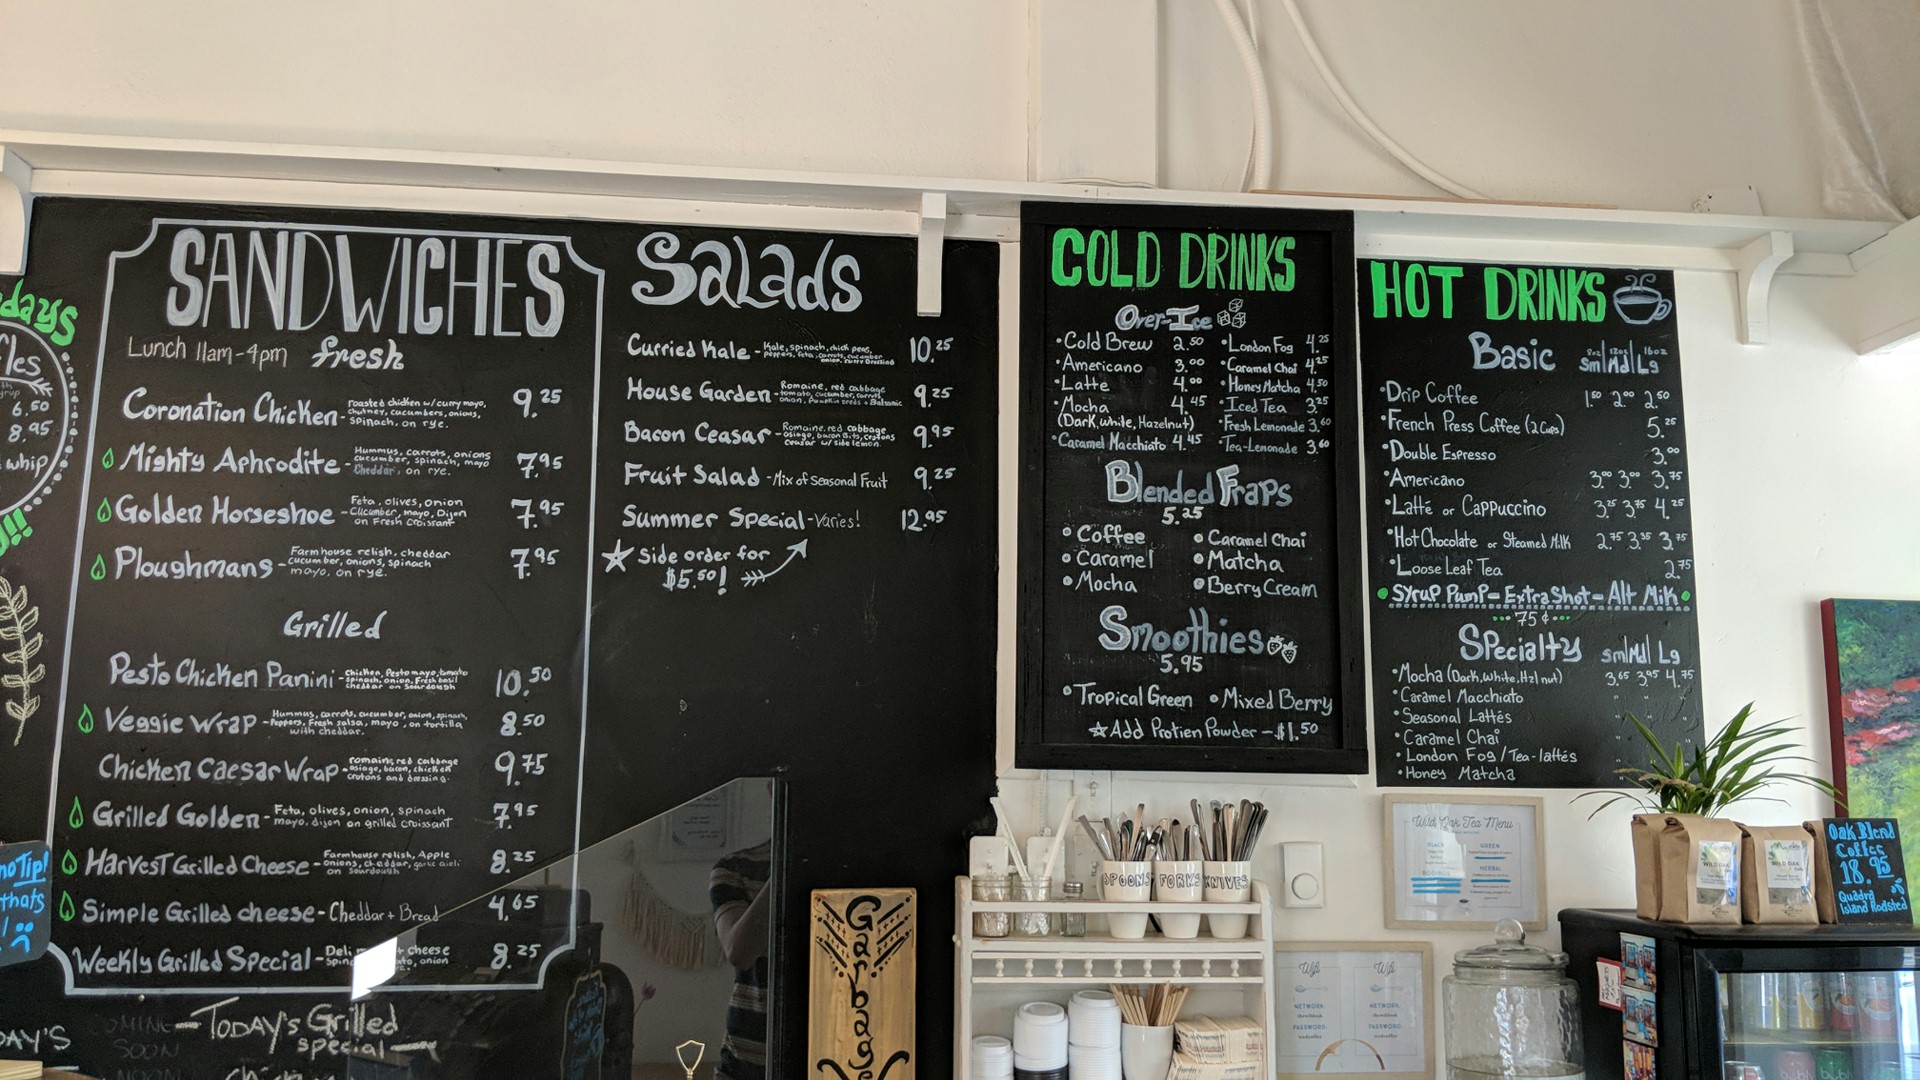 days
6.50
8.95
whip
!!
no Tip!
thats
SANDWICHES
Lunch 11am-4pm fresh
Coronation Chicken - roasted chicken w/ curry mayo, 9.25
chutney, cucumbers, onions,
spinach, on rye.
Mighty Aphrodite - Hummus, carrots, onions 7.95
cucumber, spinach, mayo
Cheddar, on rye.
Golden Horseshoe - Feta, olives, onion 7.95
cucumber, mayo, Dijon
on Fresh Croissant
Ploughmans - Farmhouse relish, cheddar 7.95
cucumber, onions, spinach
mayo, on rye.
Grilled
Pesto Chicken Panini - chicken, Pesto mayo, tomato 10.50
spinach, onion, Fresh basil
cheddar on Sourdough
Veggie Wrap - Hummus, carrots, cucumber, onion, spinach, 8.50
Peppers, Fresh salsa, mayo, on tortilla
with cheddar.
Chicken Caesar Wrap - romaine, red cabbage 9.75
asiago, bacon, chicken
crotons and dressing.
Grilled Golden - Feta, olives, onion, spinach 7.95
mayo, dijon on grilled croissant
Harvest Grilled Cheese - Farmhouse relish, Apple 8.25
onions, cheddar, garlic aioli
on Sourdough
Simple Grilled cheese - Cheddar + Bread 4.65
Weekly Grilled Special - Deli cheese 8.25
onion
DAY'S
SOON
TODAY'S Grilled
special
Salads
Curried Kale - Kale, spinach, chick peas, 10.25
peppers, feta, carrots, cucumber
onion, curry Dressing
House Garden - Romaine, red cabbage 9.25
tomato, cucumber, carrot,
onion, Pumpkin seeds + Balsamic
Bacon Ceasar - Romaine, red cabbage 9.95
asiago, bacon Bits, croutons
ceasar w/ side lemon.
Fruit Salad - Mix of Seasonal Fruit 9.25
Summer Special - Varies! 12.95
Side order for
$5.50!
COLD DRINKS
Over-Ice
• Cold Brew 2.50
• Americano 3.00
• Latte 4.00
• Mocha 4.45
(Dark, white, Hazelnut)
• Caramel Macchiato 4.45
• London Fog 4.25
• Caramel Chai 4.25
• Honey Matcha 4.50
• Iced Tea 3.25
• Fresh Lemonade 3.60
Tea-Lemonade 3.60
Blended Fraps
5.25
• Coffee
• Caramel
• Mocha
• Caramel Chai
• Matcha
• Berry Cream
Smoothies
5.95
• Tropical Green • Mixed Berry
Add Protien Powder - $1.50
HOT DRINKS
Basic 8oz 12oz 16oz
Sm|Md|Lg
• Drip Coffee 1.50 2.00 2.50
• French Press Coffee (2 Cups) 5.25
• Double Espresso 3.00
• Americano 3.00 3.00 3.75
• Latté or Cappuccino 3.25 3.75 4.25
• Hot Chocolate or Steamed Milk 2.75 3.35 3.75
• Loose Leaf Tea 2.75
• Syrup Pump - Extra Shot - Alt Milk •
75¢
Specialty sm|Md|Lg
• Mocha (Dark, white, Hzlnut) 3.65 3.95 4.75
• Caramel Macchiato
• Seasonal Lattés
• Caramel Chai
• London Fog / Tea-lattés
• Honey Matcha
SPOONS FORKS KNIVES
Garbage
Wild Oak Tea Menu
BLACK
GREEN
ROOIBOS
HERBAL
Wifi
NETWORK:
PASSWORD:
Wifi
NETWORK:
PASSWORD:
WILD OAK
WILD OAK
Oak Blend
Coffee
18.95
Quadra
Island Roasted
bubly